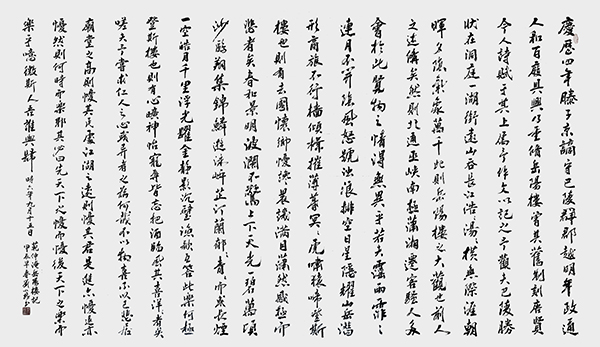 慶曆四年滕子京謫守巴陵群郡越明年政通
人和百廢具興乃重脩岳陽樓增其舊制刻唐賢
今人詩賦于其上屬予作文以記之予觀夫巴陵勝
狀在洞庭一湖銜遠山吞長江浩浩湯湯橫無際涯朝
暉夕陰氣象萬千此則岳陽樓之大觀也前人
之述備矣然則北通巫峽南極瀟湘遷客騷人多
會於此覽物之情得無異乎若夫霪雨霏霏
連月不開陰風怒號濁浪排空日星隱耀山岳潛
形商旅不行檣傾楫摧薄暮冥冥虎嘯猿啼登斯
樓也則有去國懷鄉憂讒畏譏滿目蕭然感極而
悲者矣春和景明波瀾不驚上下天光一碧萬頃
沙鷗翔集錦鱗游泳岸芷汀蘭郁郁青青而或長煙
一空皓月千里浮光耀金靜影沉璧漁歌互答此樂何極
登斯樓也則有心曠神怡寵辱皆忘把酒臨風其喜洋洋者矣
嗟夫予嘗求仁人之心或異者之為何哉不以物喜不以己悲居
廟堂之高則憂其民處江湖之遠則憂其君是進亦憂退
憂然則何時而樂耶其必曰先天下之憂而憂後天下之樂而
樂乎噫微斯人吾誰與歸 時六年九月十五日
范仲淹岳陽樓記
甲午年春